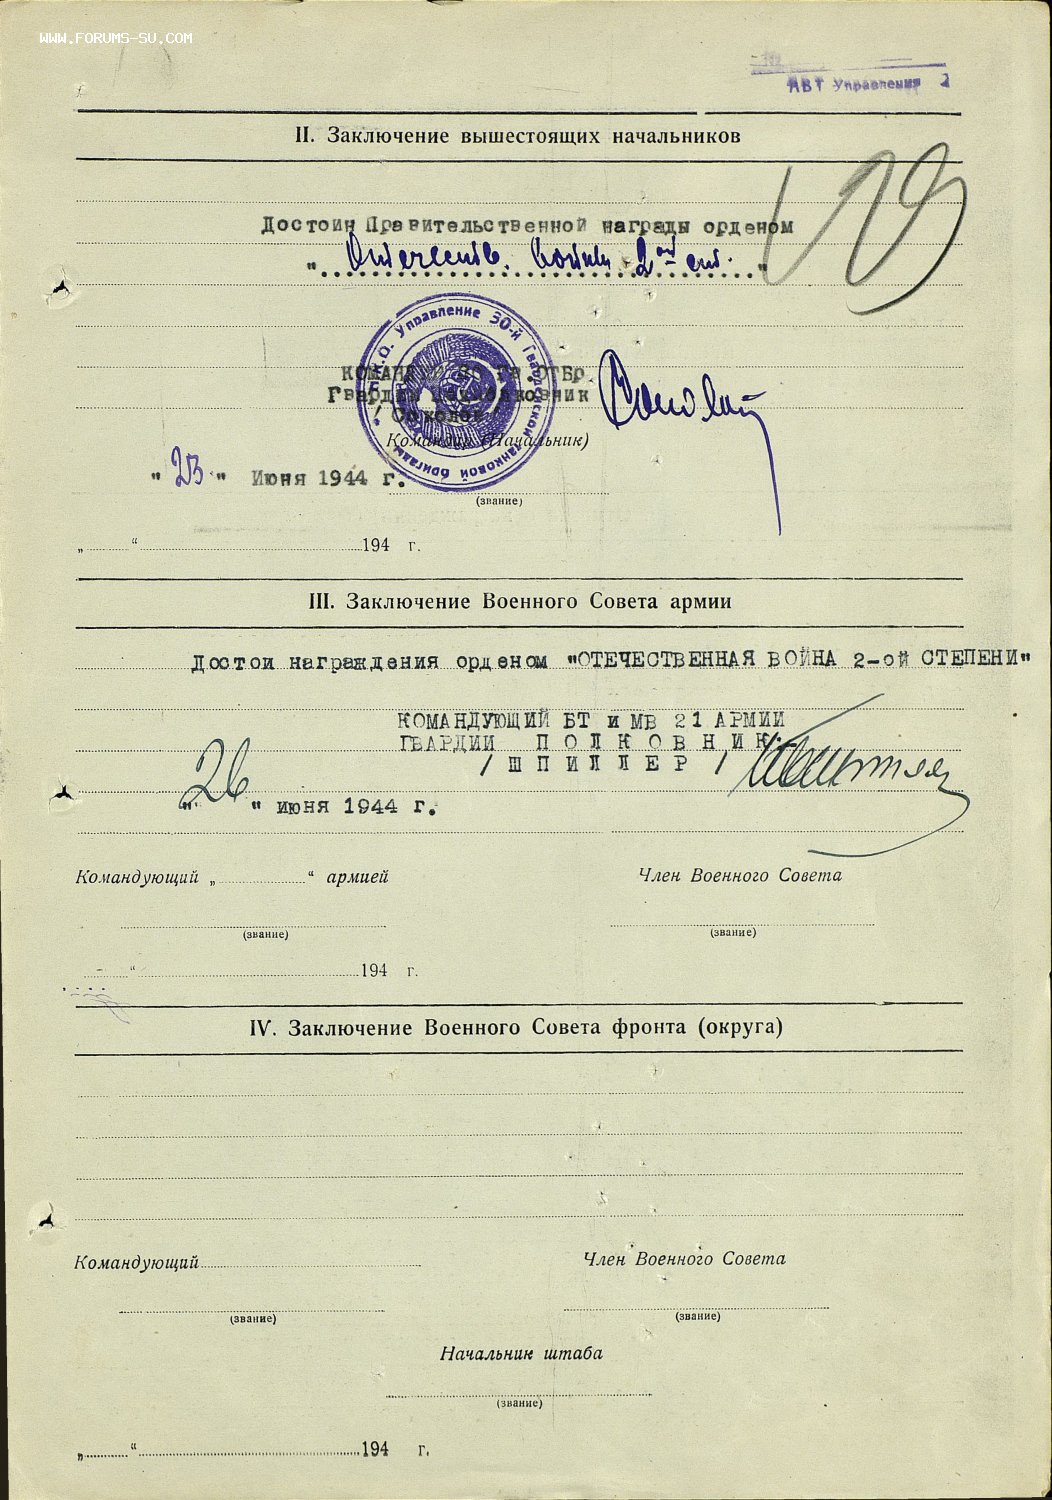 WWW.FORUMS-SU.COM
АВТ Управления 2
II. Заключение вышестоящих начальников
Достоин Правительственной награды орденом
" Отечеств. войны 2ой ст. "
КОМАНДИР 30 Гв. ОТБр.
Гвардии Подполковник
/ Соколов /
Н.К.О. Управление 30-й Гвардейской танковой бригады
Командир (Начальник)
" 23 " Июня 1944 г.
(звание)
„ “ 194 г.
III. Заключение Военного Совета армии
Достои награждения орденом "ОТЕЧЕСТВЕННАЯ ВОЙНА 2-ой СТЕПЕНИ"
КОМАНДУЮЩИЙ БТ и МВ 21 АРМИИ
ГВАРДИИ ПОЛКОВНИК-
/ ШПИЛЛЕР /
" 26 " июня 1944 г.
Командующий „ “ армией
Член Военного Совета
(звание)
(звание)
“ 194 г.
IV. Заключение Военного Совета фронта (округа)
Командующий
Член Военного Совета
(звание)
(звание)
Начальник штаба
(звание)
„ “ 194 г.